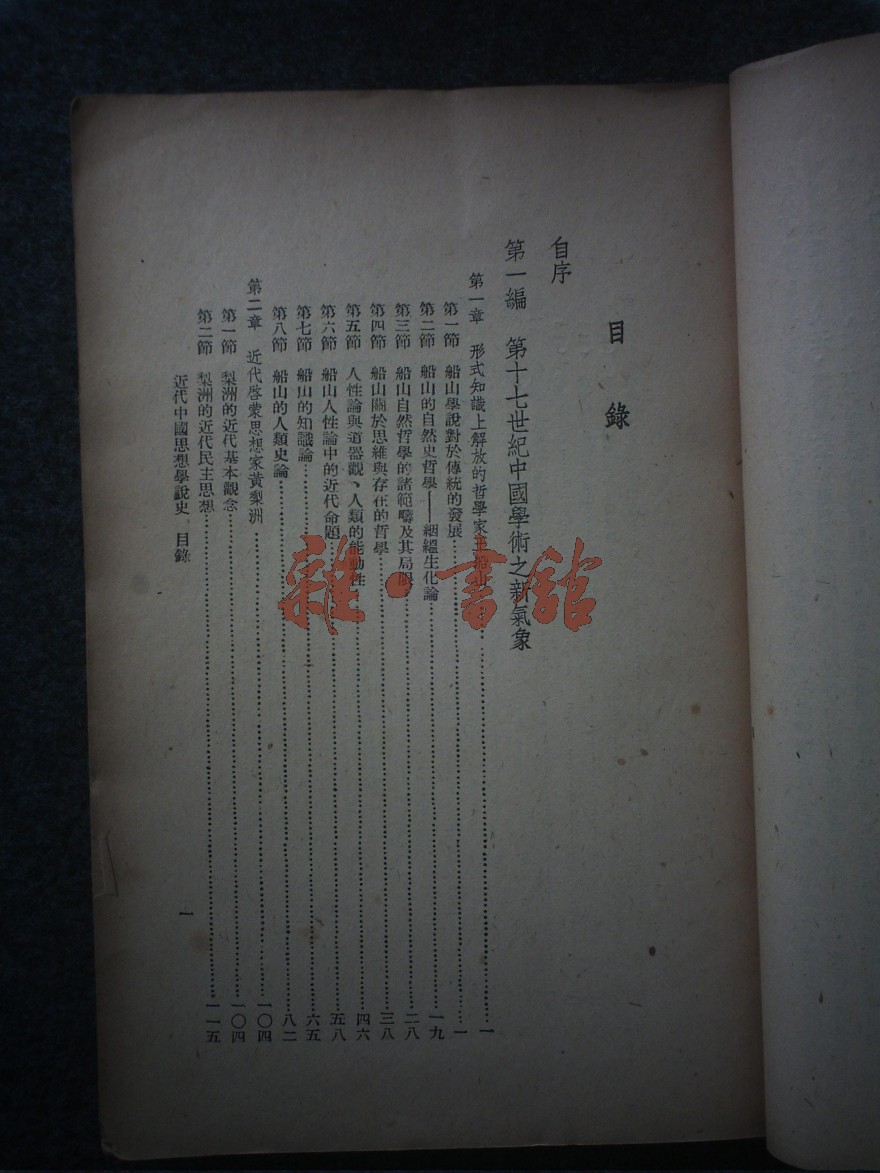 目錄
自序
第一編 第十七世紀中國學術之新氣象
第一章 形式知識上解放的哲學家王船山……一
第一節 船山學說對於傳統的發展……一
第二節 船山的自然史哲學——絪縕生化論……一九
第三節 船山自然哲學的諸範疇及其局限……二八
第四節 船山關於思維與存在的哲學……三八
第五節 人性論與道器觀、人類的能動性……四六
第六節 船山人性論中的近代命題……五八
第七節 船山的知識論……六五
第八節 船山的人類史論……八二
第二章 近代啓蒙思想家黃梨洲……一〇四
第一節 梨洲的近代基本觀念……一〇四
第二節 梨洲的近代民主思想……一一五
近代中國思想學說史 目錄
一
雜·書館